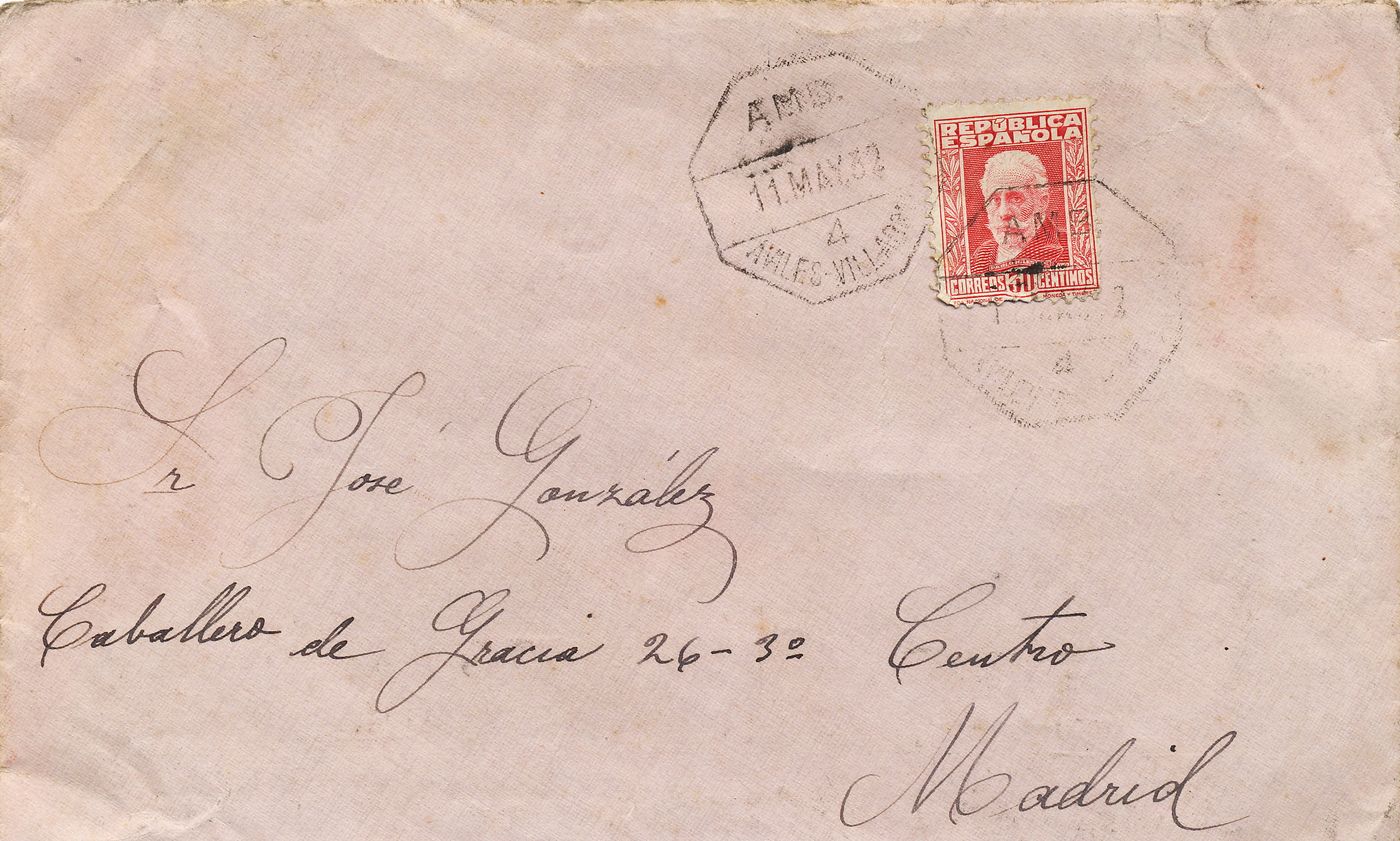 AMB.
11.MAY.32
4
AVILES-VILLA
REPÚBLICA
ESPAÑOLA
AMB
CORREOS 30 CENTIMOS
4
Sr José González
Caballero de Gracia 26-3º Centro
Madrid